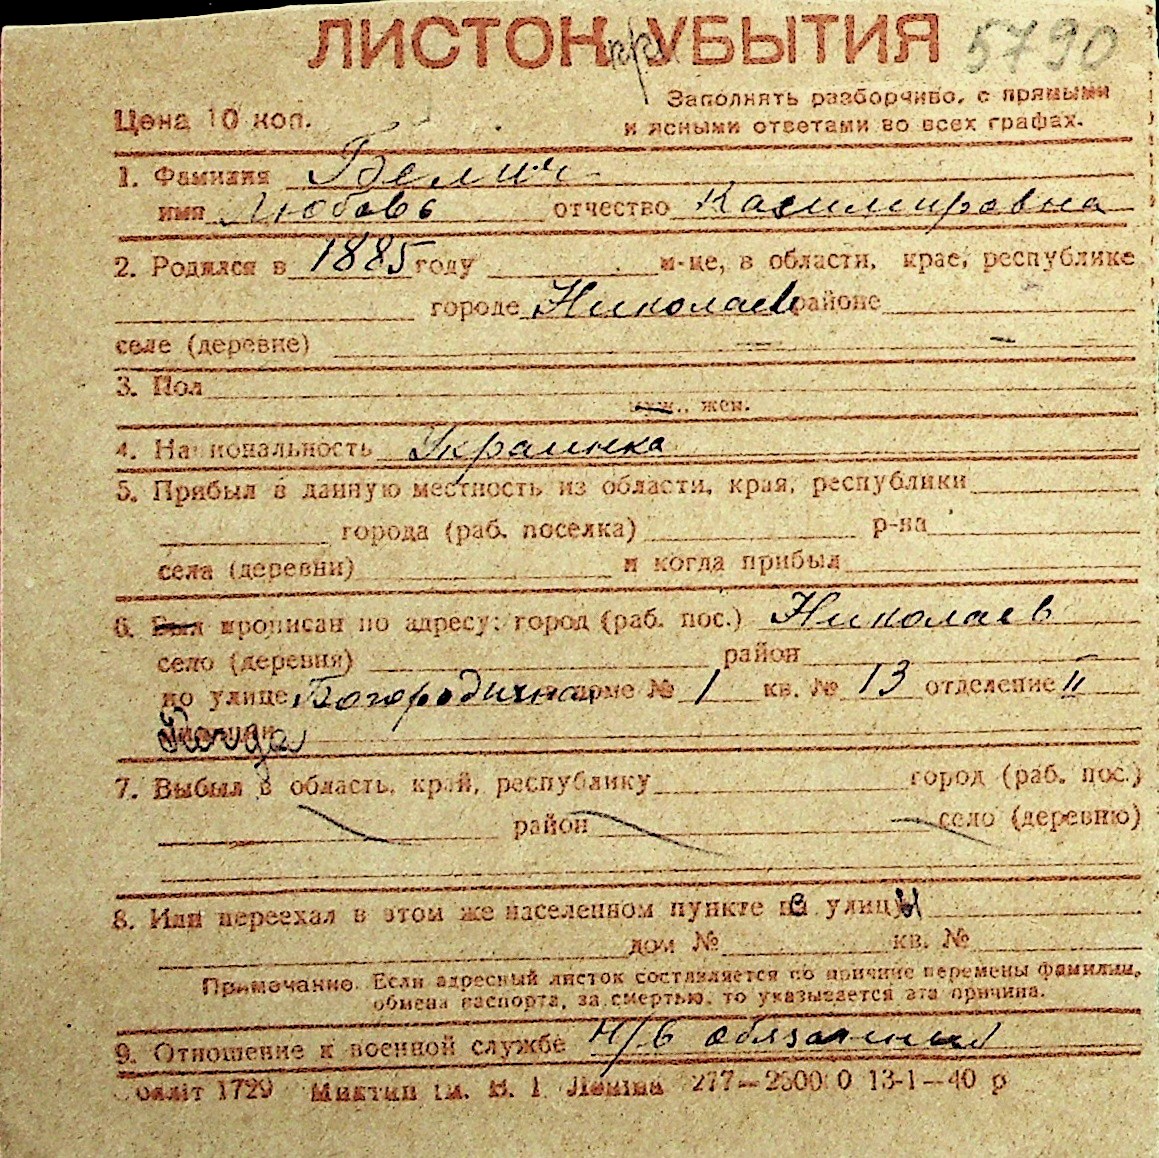 ЛИСТОК пр УБЫТИЯ 5790
Заполнять разборчиво, с прямыми
Цена 10 коп. и ясными ответами во всех графах.
1. Фамилия Белич
имя Любовь отчество Казимировна
2. Родился в 1885 году м-це, в области, крае, республике
городе Николаев районе
селе (деревне)
3. Пол
муж., жен.
4. Национальность Украинка
5. Прибыл в данную местность из области, края, республики
города (раб. поселка) р-на
села (деревни) и когда прибыл
6. Был прописан по адресу: город (раб. пос.) Николаев
село (деревня) район
по улице Богородичная доме № 1 кв. № 13 отделение II
7. Выбыл в область, край, республику город (раб. пос.)
район село (деревню)
8. Или переехал в этом же населенном пункте с улицы
дом № кв. №
Примечание. Если адресный листок составляется по причине перемены фамилии,
обмена паспорта, за смертью, то указывается эта причина.
9. Отношение к военной службе н/в обязанный
1729 им. В. І. Леніна 13-1—40 р